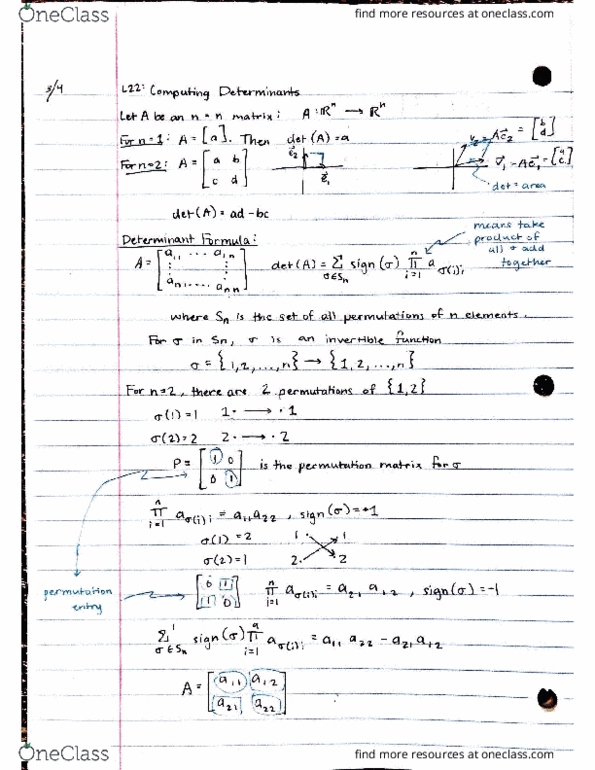 OneClass
find more resources at oneclass.com
3/4
L22: Computing Determinants
Let A be an n × n matrix: A: ℝⁿ → ℝⁿ
For n=1: A = [a]. Then det(A) = a
For n=2: A = [a b
c d]
e⃗₂
e⃗₁
v⃗₂ = Ae⃗₂ = [b d]
v⃗₁ - Ae⃗₁ = [a c]
det = area
det(A) = ad - bc
means take
product of
all + add
together
Determinant Formula:
A = [a₁₁ ... a₁ₙ
⋮ ⋮
aₙ₁ .... aₙₙ]
det(A) = Σ σ∈Sₙ sign(σ) ∏ i=1 n a σ(i)i
where Sₙ is the set of all permutations of n elements.
For σ in Sn, σ is an invertible function
σ = {1,2,...,n} → {1,2,...,n}
For n=2, there are 2 permutations of {1,2}
σ(1)=1 1· → ·1
σ(2)=2 2· → ·2
P = [1 0
0 1] is the permutation matrix for σ
∏ i=1 n a σ(i)i = a₁₁a₂₂, sign(σ)=+1
σ(1) = 2 1· 1
σ(2)=1 2· 2
permutation
entry
[0 1
1 0] ∏ i=1 n a σ(i)i = a₂₁ a₁₂, sign(σ)=-1
Σ σ∈Sₙ sign(σ) ∏ i=1 a σ(i)i = a₁₁ a₂₂ - a₂₁a₁₂
A = [a₁₁ a₁₂
a₂₁ a₂₂]
OneClass
find more resources at oneclass.com